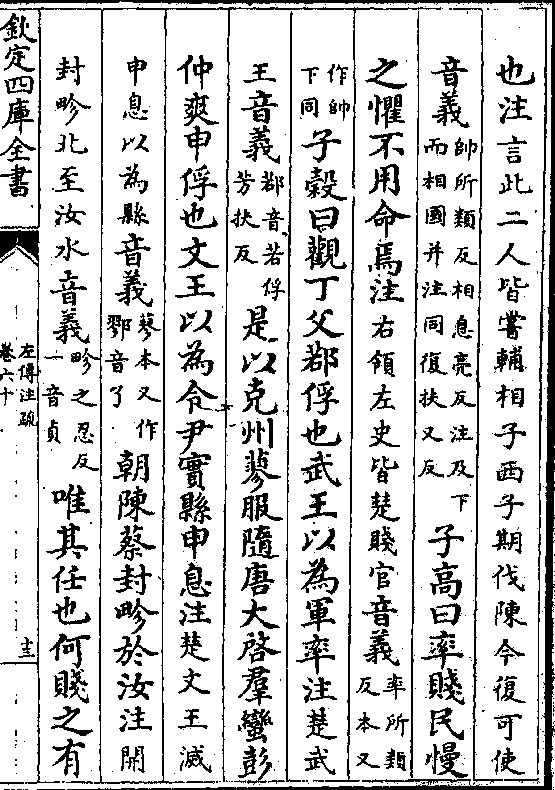 也注言此二人皆嘗輔相子西子期伐陳今復可使
音義帥所類反相息亮反注及下
而相國并注同復扶又反子高曰率賤民慢
之懼不用命焉注右領左史皆楚賤官音義率所類
反本又
作帥
下同子榖曰觀丁父鄀俘也武王以為軍率注楚武
王音義鄀音若俘
芳扶反是以克州蓼服隨唐大啓羣蠻彭
仲爽申俘也文王以為令尹實縣申息注楚文王滅
申息以為縣音義蓼本又作
鄝音了朝陳蔡封畛於汝注開
封畛北至汝水音義畛之忍反
一音貞唯其任也何賤之有
欽定四庫全書
左傳注疏
卷六十